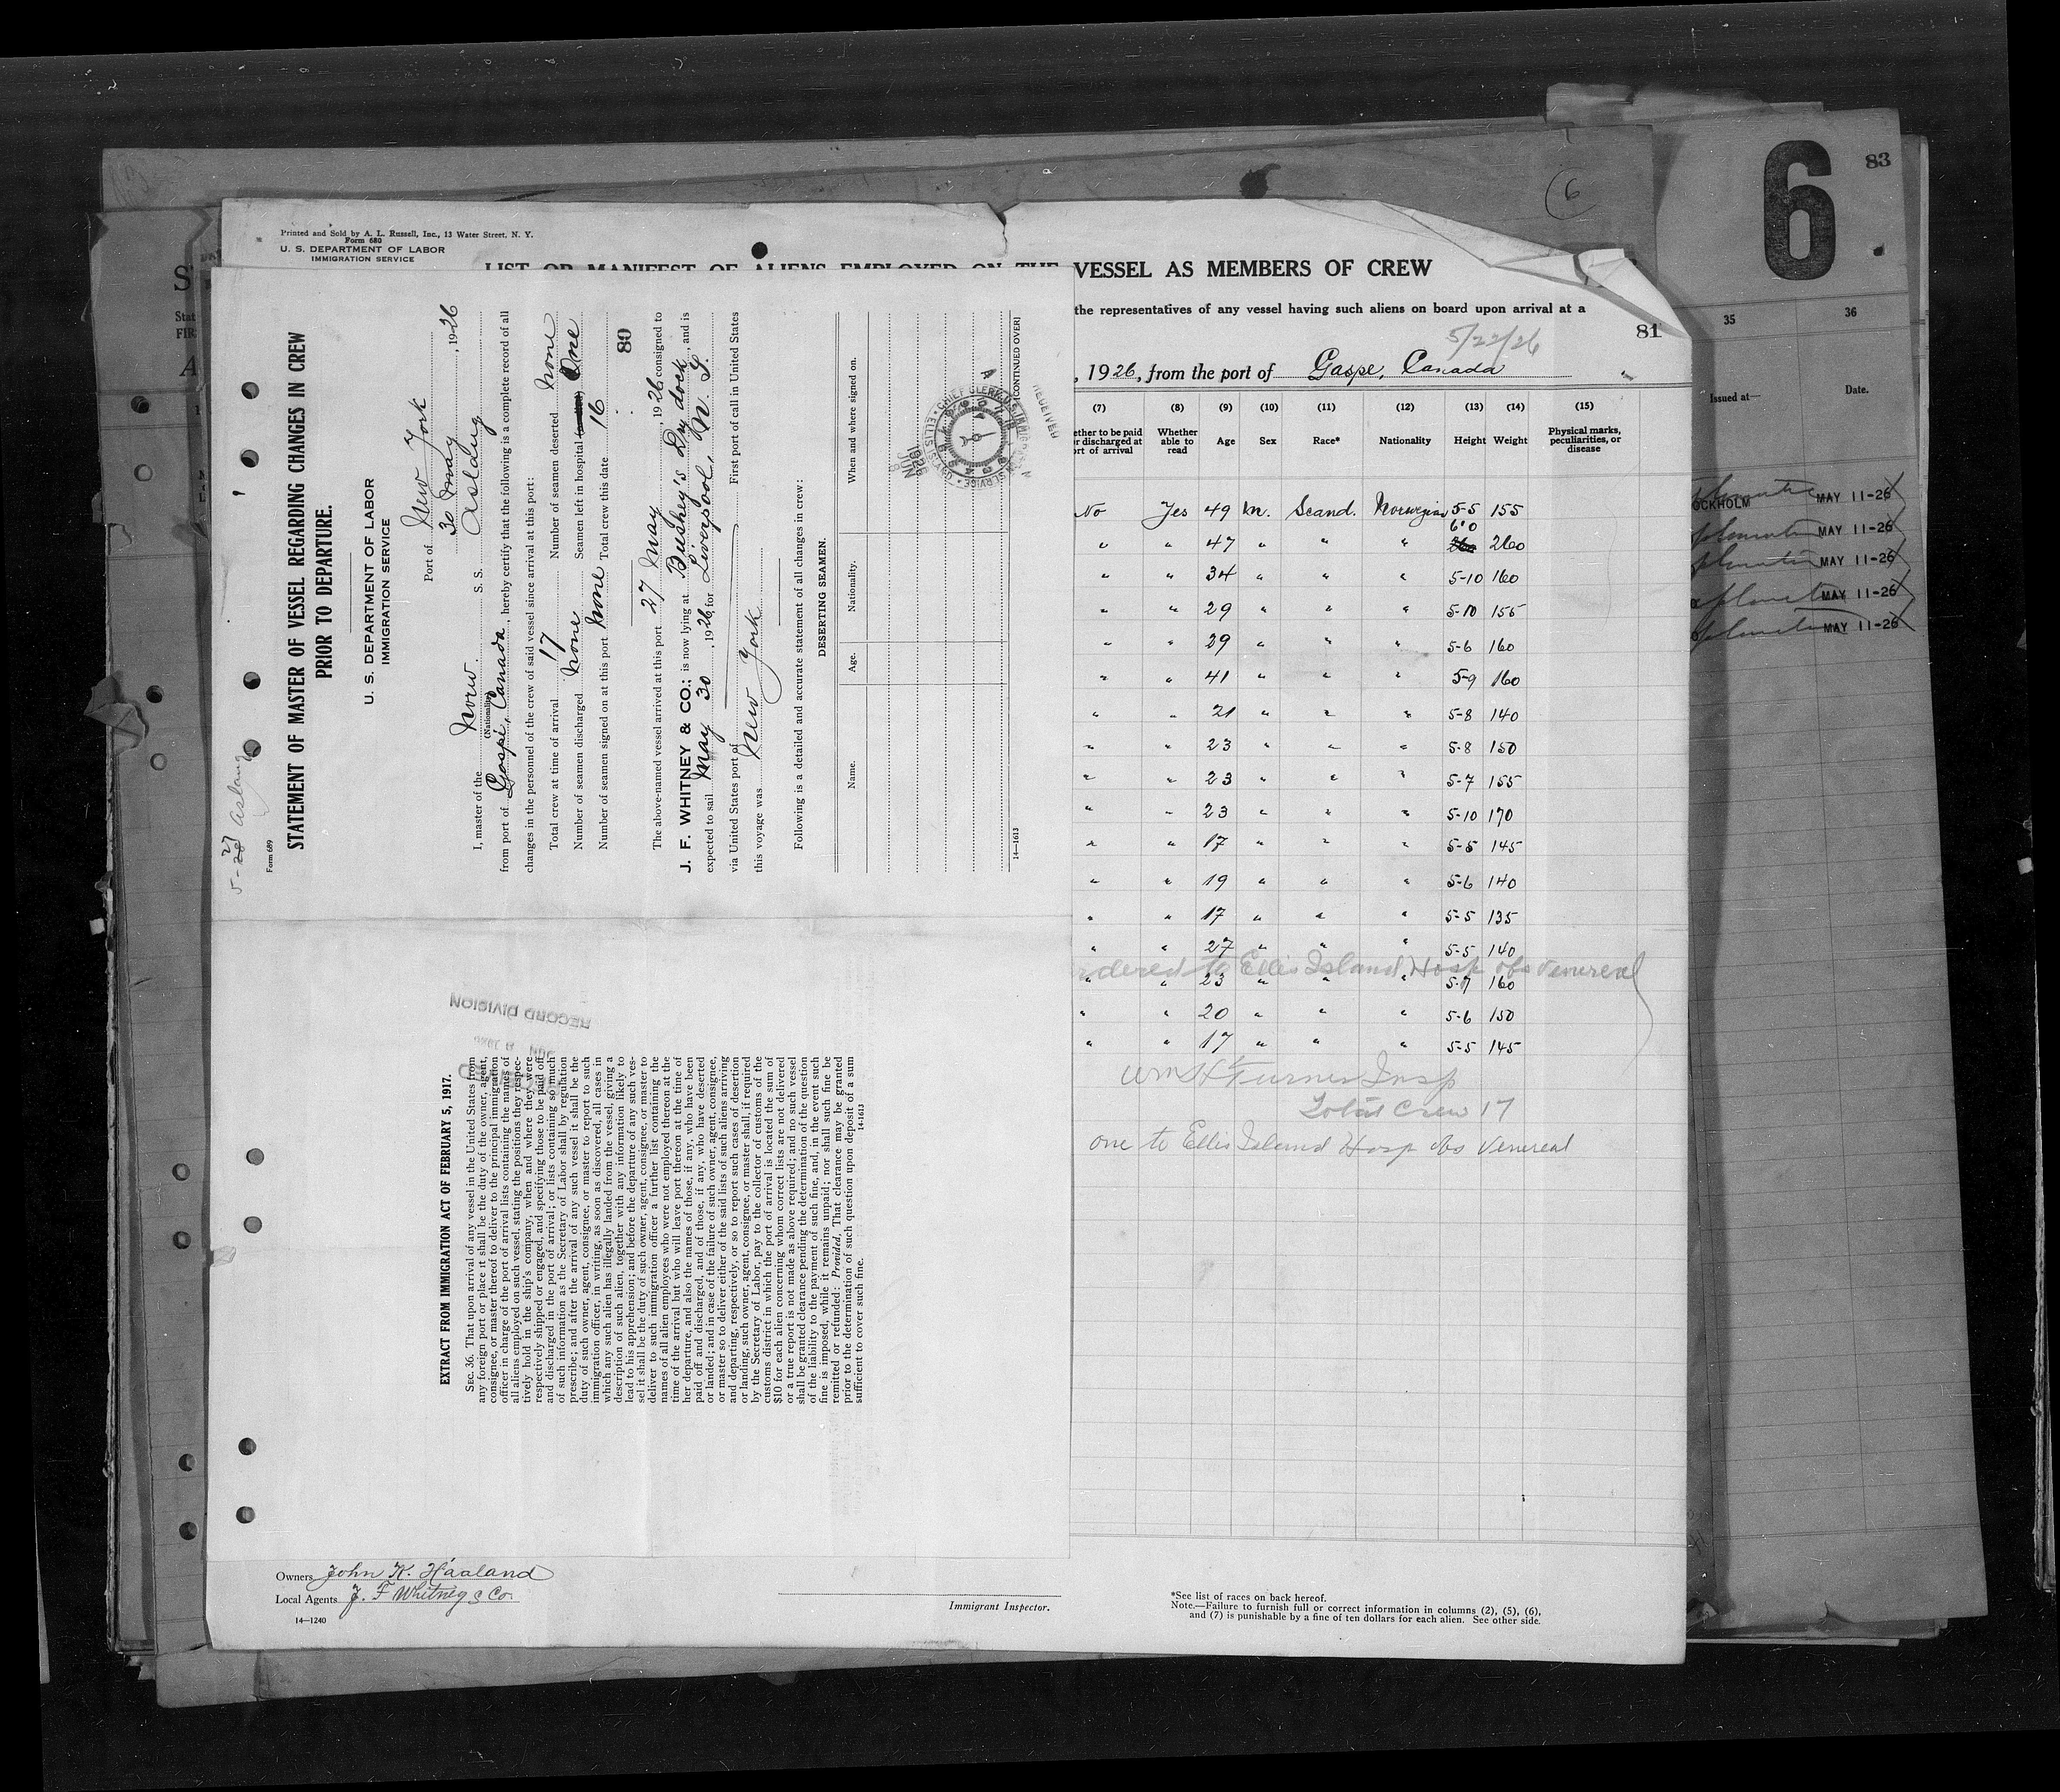 83
6
35
36
Issued at—
Date.
OCKHOLM
MAY 11-26
MAY 11-26
MAY 11-26
MAY 11-26
MAY 11-26
6
Printed and Sold by A. L. Russell, Inc., 13 Water Street, N. Y.
Form 680
U. S. DEPARTMENT OF LABOR
IMMIGRATION SERVICE
LIST OR MANIFEST OF ALIENS EMPLOYED ON THE VESSEL AS MEMBERS OF CREW
the representatives of any vessel having such aliens on board upon arrival at a
81
5/22/26
, 1926, from the port of Gaspe, Canada
(7) (8) (9) (10) (11) (12) (13) (14) (15)
ether to be paid or discharged at ort of arrival
Whether able to read
Age
Sex
Race*
Nationality
Height
Weight
Physical marks, peculiarities, or disease
No Yes 49 M. Scand. Norwegian 5-5 155
" " 47 " " " 6'0 260
" " 34 " " " 5-10 160
" " 29 " " " 5-10 155
" " 29 " " " 5-6 160
" " 41 " " " 5-9 160
" " 21 " " " 5-8 140
" " 23 " " " 5-8 150
" " 23 " " " 5-7 155
" " 23 " " " 5-10 170
" " 17 " " " 5-5 145
" " 19 " " " 5-6 140
" " 17 " " " 5-5 135
" " 27 " " " 5-5 140
rdered to Ellis Island Hosp obs Venereal
" " 23 " " " 5-7 160
" " 20 " " " 5-6 150
" " 17 " " " 5-5 145
Wm H Turner Insp
Total Crew 17
one to Ellis Island Hosp obs Venereal
Owners John K. Haaland
Local Agents J. F Whitney & Co.
14—1240
Immigrant Inspector.
*See list of races on back hereof.
Note.—Failure to furnish full or correct information in columns (2), (5), (6),
and (7) is punishable by a fine of ten dollars for each alien. See other side.
5-27 Aslaug
Form 689
STATEMENT OF MASTER OF VESSEL REGARDING CHANGES IN CREW
PRIOR TO DEPARTURE.
U. S. DEPARTMENT OF LABOR
IMMIGRATION SERVICE
Port of New York
30 May, 1926
I, master of the Norw. S. S. Aslaug
(Nationality)
from port of Gaspé, Canada, hereby certify that the following is a complete record of all
changes in the personnel of the crew of said vessel since arrival at this port:
Total crew at time of arrival 17 Number of seamen deserted None
Number of seamen discharged None Seamen left in hospital One
Number of seamen signed on at this port None Total crew this date 16
80
The above-named vessel arrived at this port 27 May, 1926 consigned to
J. F. WHITNEY & CO.; is now lying at Bushey's Dry dock, and is
expected to sail May 30, 1926, for Liverpool, N. S.
via United States port of First port of call in United States
this voyage was New York
Following is a detailed and accurate statement of all changes in crew:
DESERTING SEAMEN.
Name. Age. Nationality. When and where signed on.
14—1613
(CONTINUED OVER)
RECEIVED
CHIEF CLERK, U. S. IMMIGRATION SERVICE ELLIS ISLAND
JUN
1926
RECORD DIVISION
EXTRACT FROM IMMIGRATION ACT OF FEBRUARY 5, 1917.
SEC. 36. That upon arrival of any vessel in the United States from
any foreign port or place it shall be the duty of the owner, agent,
consignee, or master thereof to deliver to the principal immigration
officer in charge of the port of arrival lists containing the names of
all aliens employed on such vessel, stating the positions they respec-
tively hold in the ship's company, when and where they were
respectively shipped or engaged, and specifying those to be paid off
and discharged in the port of arrival; or lists containing so much
of such information as the Secretary of Labor shall by regulation
prescribe; and after the arrival of any such vessel it shall be the
duty of such owner, agent, consignee, or master to report to such
immigration officer, in writing, as soon as discovered, all cases in
which any such alien has illegally landed from the vessel, giving a
description of such alien, together with any information likely to
lead to his apprehension; and before the departure of any such ves-
sel it shall be the duty of such owner, agent, consignee, or master to
deliver to such immigration officer a further list containing the
names of all alien employees who were not employed thereon at the
time of the arrival but who will leave port thereon at the time of
her departure, and also the names of those, if any, who have been
paid off and discharged, and of those, if any, who have deserted
or landed; and in case of the failure of such owner, agent, consignee,
or master so to deliver either of the said lists of such aliens arriving
and departing, respectively, or so to report such cases of desertion
or landing, such owner, agent, consignee, or master shall, if required
by the Secretary of Labor, pay to the collector of customs of the
customs district in which the port of arrival is located the sum of
$10 for each alien concerning whom correct lists are not delivered
or a true report is not made as above required; and no such vessel
shall be granted clearance pending the determination of the question
of the liability to the payment of such fine, and, in the event such
fine is imposed, while it remains unpaid; nor shall such fine be
remitted or refunded: Provided, That clearance may be granted
prior to the determination of such question upon deposit of a sum
sufficient to cover such fine.
14-1613